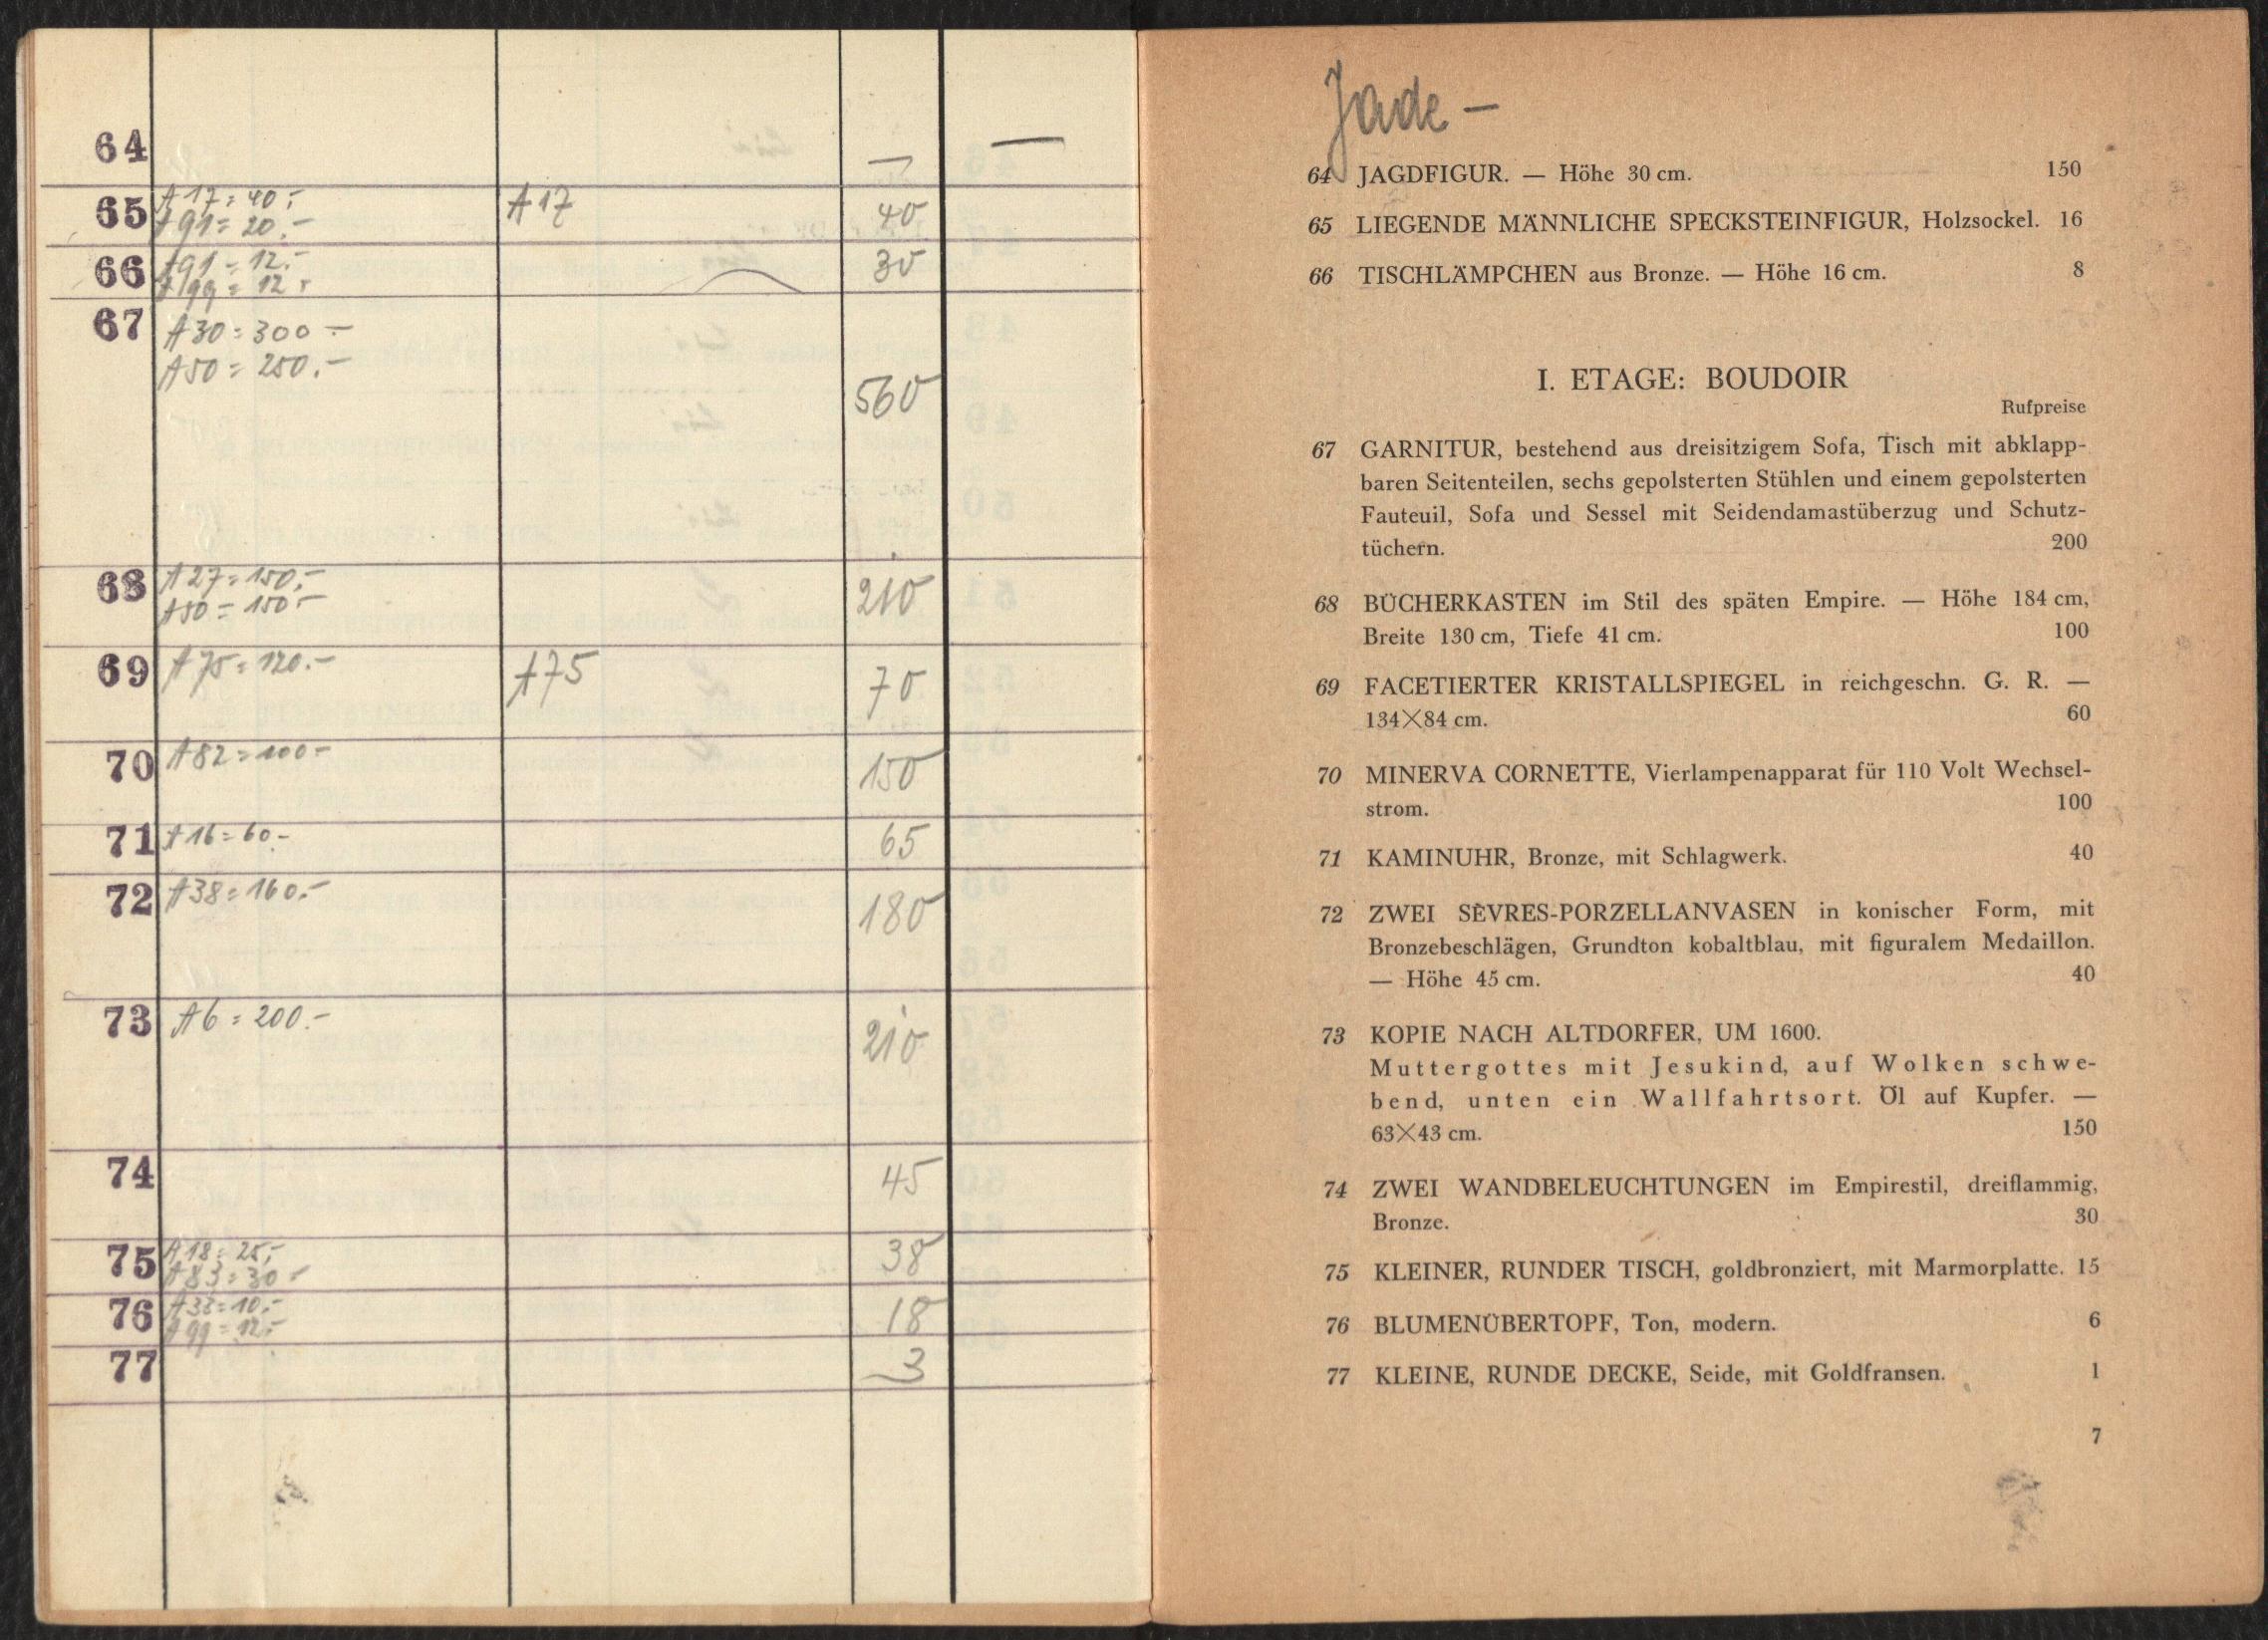 64 — —
65 A17 = 40.- A17 40
A91 = 20.-
66 A91 = 12.- 30
A99 = 12.-
67 A30 = 300.-
A50 = 250.-
560
68 A27 = 150.- 210
A50 = 150.-
69 A75 = 120.- A75 70
70 A82 = 100.- 150
71 A16 = 60.- 65
72 A38 = 160.- 180
73 A6 = 200.- 210
74 45
75 A18 = 25.- 38
A83 = 30.-
76 A33 = 10.- 18
A99 = 12.-
77 3
Jade —
64 JAGDFIGUR. — Höhe 30 cm. 150
65 LIEGENDE MÄNNLICHE SPECKSTEINFIGUR, Holzsockel. 16
66 TISCHLÄMPCHEN aus Bronze. — Höhe 16 cm. 8
I. ETAGE: BOUDOIR
Rufpreise
67 GARNITUR, bestehend aus dreisitzigem Sofa, Tisch mit abklapp-
baren Seitenteilen, sechs gepolsterten Stühlen und einem gepolsterten
Fauteuil, Sofa und Sessel mit Seidendamastüberzug und Schutz-
tüchern. 200
68 BÜCHERKASTEN im Stil des späten Empire. — Höhe 184 cm,
Breite 130 cm, Tiefe 41 cm. 100
69 FACETIERTER KRISTALLSPIEGEL in reichgeschn. G. R. —
134×84 cm. 60
70 MINERVA CORNETTE, Vierlampenapparat für 110 Volt Wechsel-
strom. 100
71 KAMINUHR, Bronze, mit Schlagwerk. 40
72 ZWEI SÈVRES-PORZELLANVASEN in konischer Form, mit
Bronzebeschlägen, Grundton kobaltblau, mit figuralem Medaillon.
— Höhe 45 cm. 40
73 KOPIE NACH ALTDORFER, UM 1600.
Muttergottes mit Jesukind, auf Wolken schwe-
bend, unten ein Wallfahrtsort. Öl auf Kupfer. —
63×43 cm. 150
74 ZWEI WANDBELEUCHTUNGEN im Empirestil, dreiflammig,
Bronze. 30
75 KLEINER, RUNDER TISCH, goldbronziert, mit Marmorplatte. 15
76 BLUMENÜBERTOPF, Ton, modern. 6
77 KLEINE, RUNDE DECKE, Seide, mit Goldfransen. 1
7